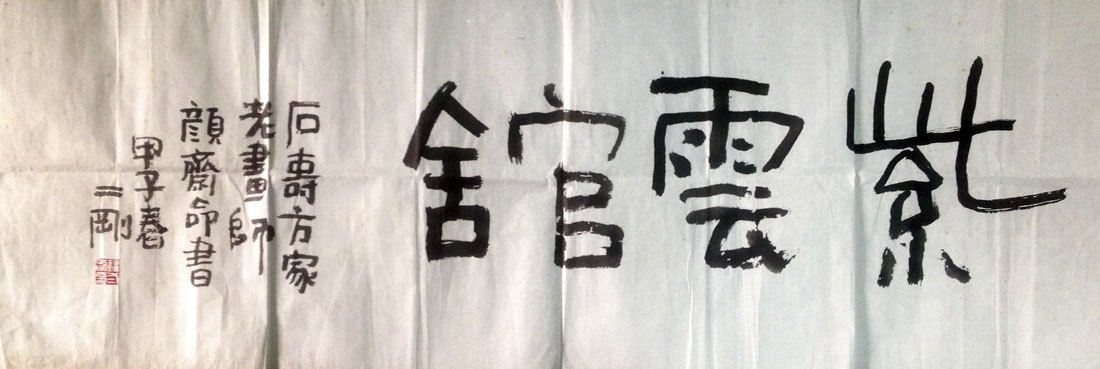 紫雲官舍
石壽方家
老畫師
顏齋命書
甲子春
二剛